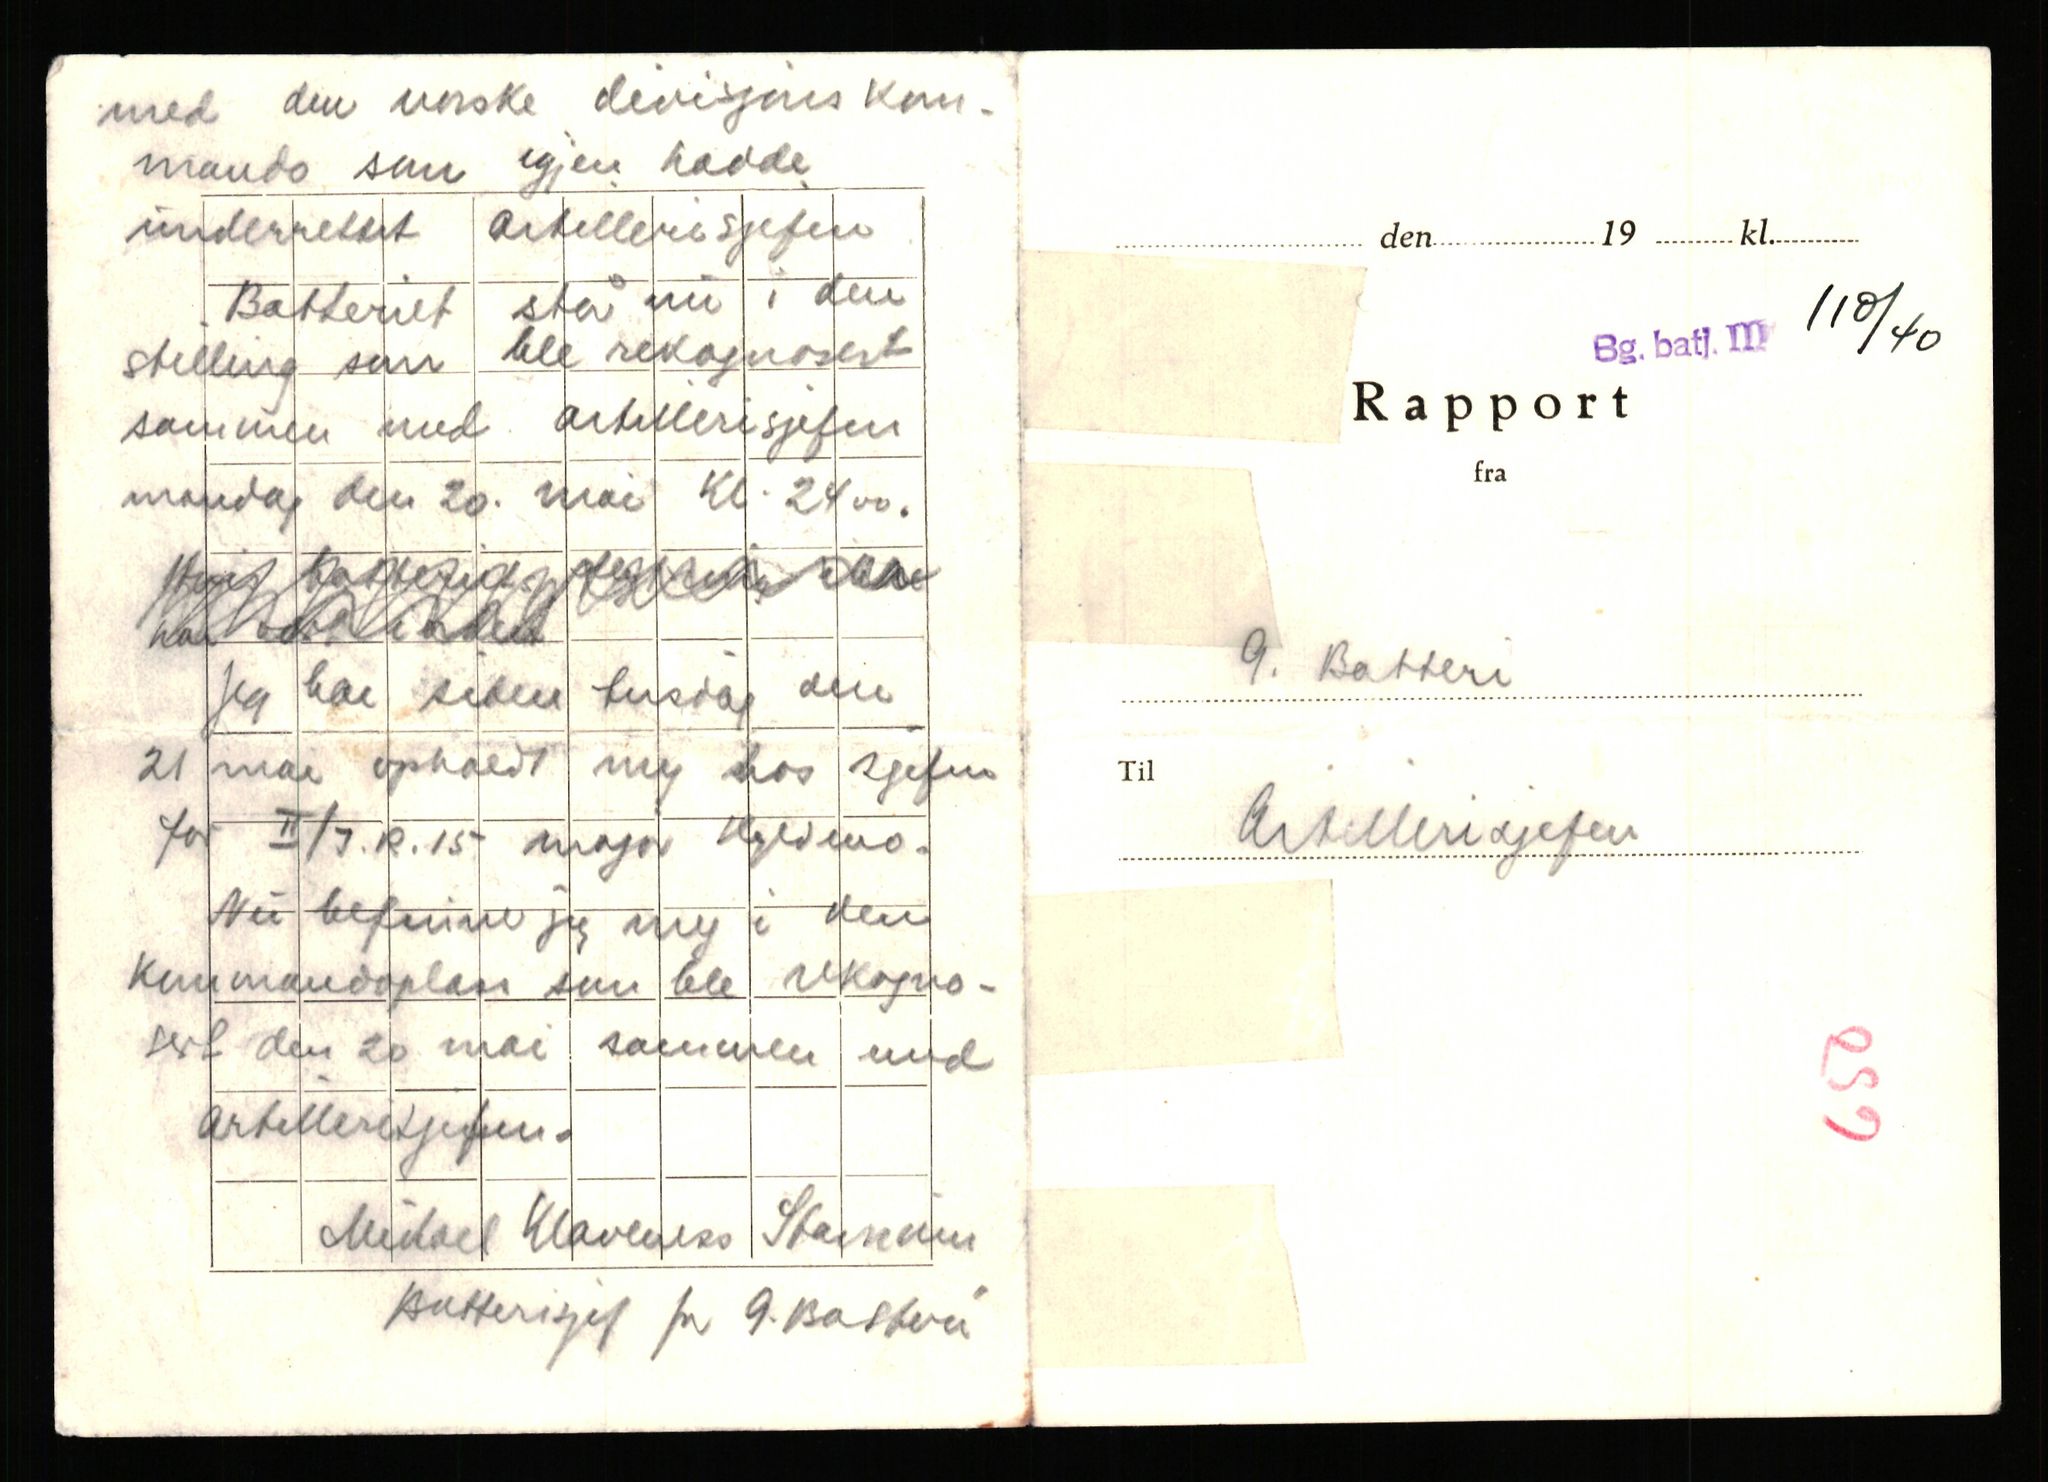 med den norske divisjons kom-
mando som igjen hadde
underrettet artillerisjefen
Batteriet står nu i den
stilling som ble rekognosert
sammen med artillerisjefen
mandag den 20. mai Kl. 24 00.
Hvis batteriet ikke
har
Jeg har siden tirsdag den
21 mai opholdt mig hos sjefen
for II/J.R.15 major Hyldmo.
Nu befinner jeg mig i den
Kommandoplass som ble rekogno-
sert den 20 mai sammen med
artillerisjefen.
Michael Klaveness
Batterisjef for 9. Batteri
den 19 kl.
110/40
Bg. batj. III
Rapport
fra
9. Batteri
Til
Artillerisjefen
259